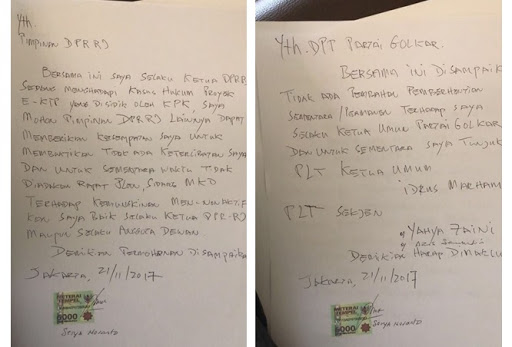 Yth.
Pimpinan DPR RI
Bersama ini saya selaku Ketua DPR R
sedang menghadapi kasus hukum proyek
E-KTP yang disidik oleh KPK, saya
mohon pimpinan DPR RI lainnya dapat
memberikan kesempatan saya untuk
membuktikan tidak ada keterlibatan saya
dan untuk sementara waktu tidak
diadakan rapat pleno, sidang MKD
terhadap kemungkinan menonaktif
kan saya baik selaku Ketua DPR-RI
maupun selaku anggota Dewan
Demikian permohonan disampaika
Jakarta, 21/11/2017
METERAI
TEMPEL
6000
Setya Novanto
Yth. DPP Partai GOLKAR.
Bersama ini disampaik
tidak ada pembahasan pemberhentian
sementara/permanen terhadap saya
selaku Ketua Umum Partai GOLKAR
dan untuk sementara saya tunjuk
PLT Ketua Umum
Idrus Marham
PLT Sekjen
Yahya Zaini
Demikian harap dimaklu
Jakarta, 21/11/2017
METERAI
TEMPEL
6000
Setya Novanto